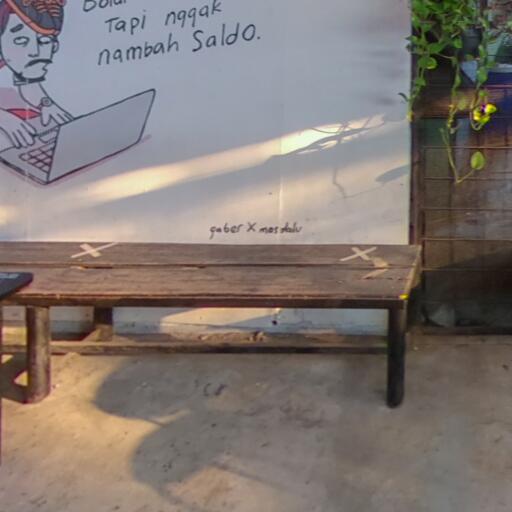 Tapi nggak
nambah Saldo.
gaber X masdalu